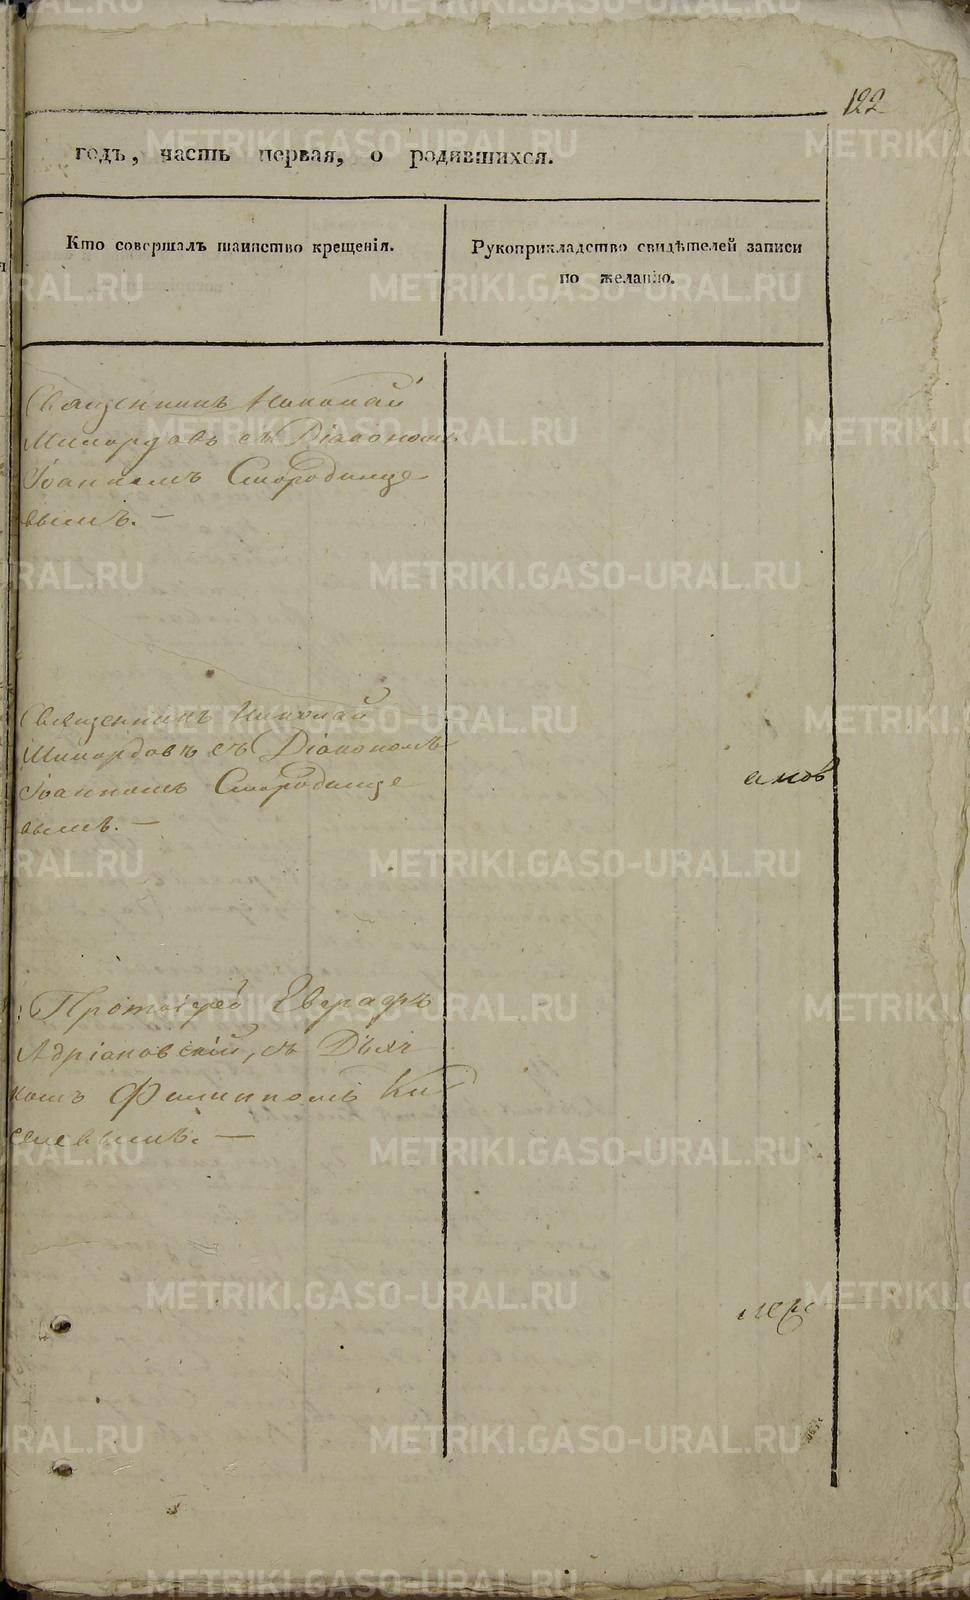 122
годъ, часть первая, о родившихся.
Кто совершалъ таинство крещенія.
Рукоприкладство свидѣтелей записи
по желанію.
Священникъ Николай
съ Діакономъ
Іоанномъ Смородинце
вымъ. —
Священникъ Николай
съ Діакономъ
Іоанномъ Смородинце
вымъ. —
Протоіерей
Адріановскій, съ Дьяч
комъ Филиппомъ Ки
селевымъ. —
METRIKI.GASO-URAL.RU